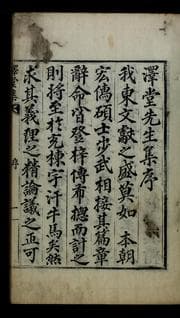 澤堂先生集序
我東文獻之盛莫如 本朝
宏儒碩士步武相接其篇章
辭命當登梓傳布摠而計之
則將至於充棟宇汗牛馬矣然
求其義理之精論議之正可